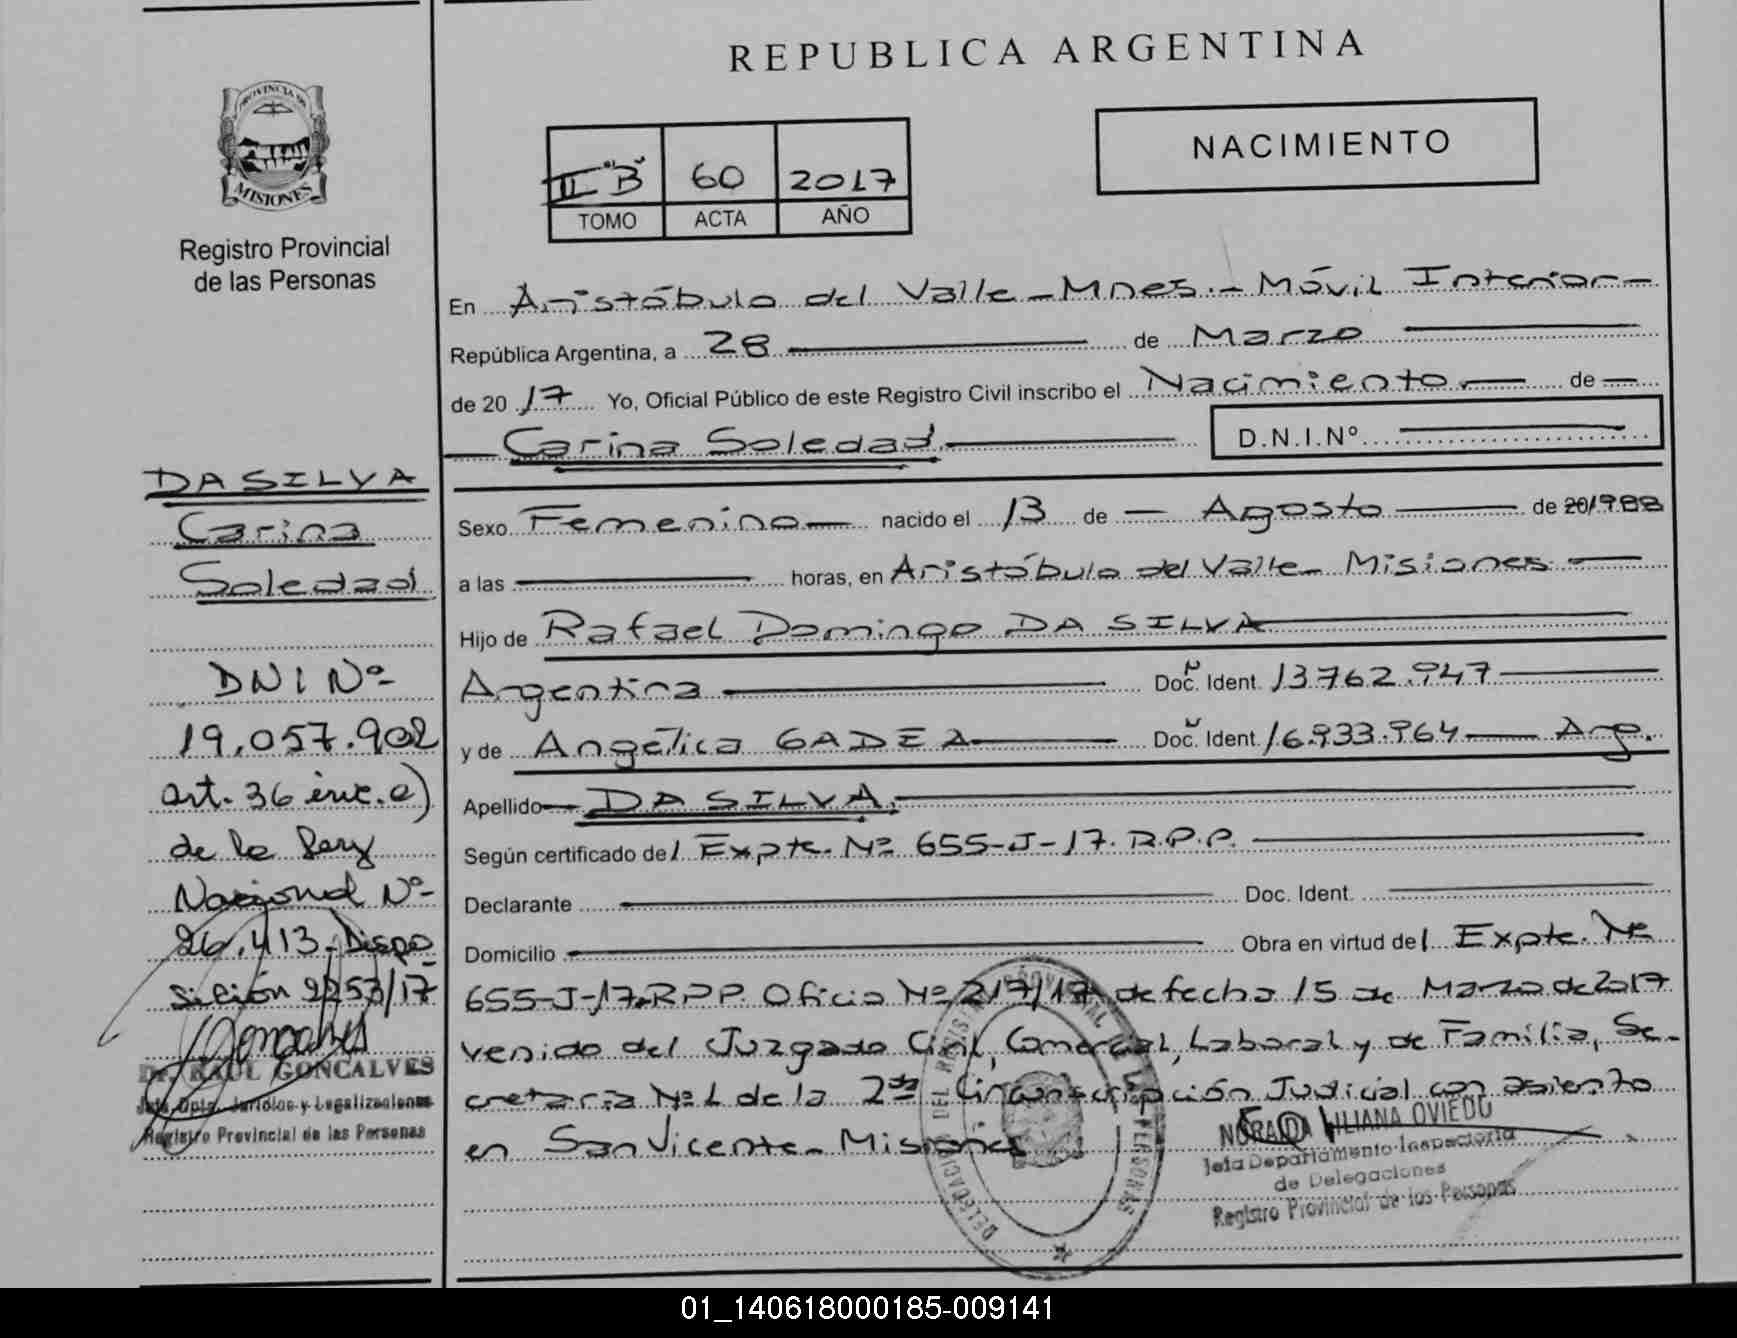 REPUBLICA ARGENTINA
PROVINCIA DE
MISIONES
Registro Provincial
de las Personas
II "B" 60 2017
TOMO ACTA AÑO
NACIMIENTO
En Aristóbulo del Valle - Mnes. - Móvil Interior -
República Argentina, a 28 de Marzo
de 2017 Yo, Oficial Público de este Registro Civil inscribo el Nacimiento de
Carina Soledad
D.N.I.Nº
DA SILVA
Carina
Soledad
DNI Nº
19.057.902
art. 36 inc. c)
de la Ley
Nacional Nº
26.413 - Dispo
sición 2253/17
Dr. RAUL GONCALVES
Jefe Dpto. Jurídico y Legalizaciones
Registro Provincial de las Personas
Sexo Femenino nacido el 13 de Agosto de 20/1988
a las horas, en Aristóbulo del Valle - Misiones
Hijo de Rafael Domingo DA SILVA
Argentina Doc. Ident. 13.762.947
y de Angélica GADEA Doc. Ident. 16.933.964 Arg.
Apellido DA SILVA
Según certificado del Expte. Nº 655-J-17. R.P.P.
Declarante Doc. Ident.
Domicilio Obra en virtud del Expte. Nº
655-J-17. RPP Oficio Nº 217/17 de fecha 15 de Marzo de 2017
venido del Juzgado Civil, Comercial, Laboral y de Familia, Se-
cretaria Nº 1 de la 2da Circunscripción Judicial con asiento
en San Vicente - Misiones
NORAIDA LILIANA OVIEDO
Jefa Departamento Inspectoria
de Delegaciones
Registro Provincial de las Personas
01_140618000185-009141